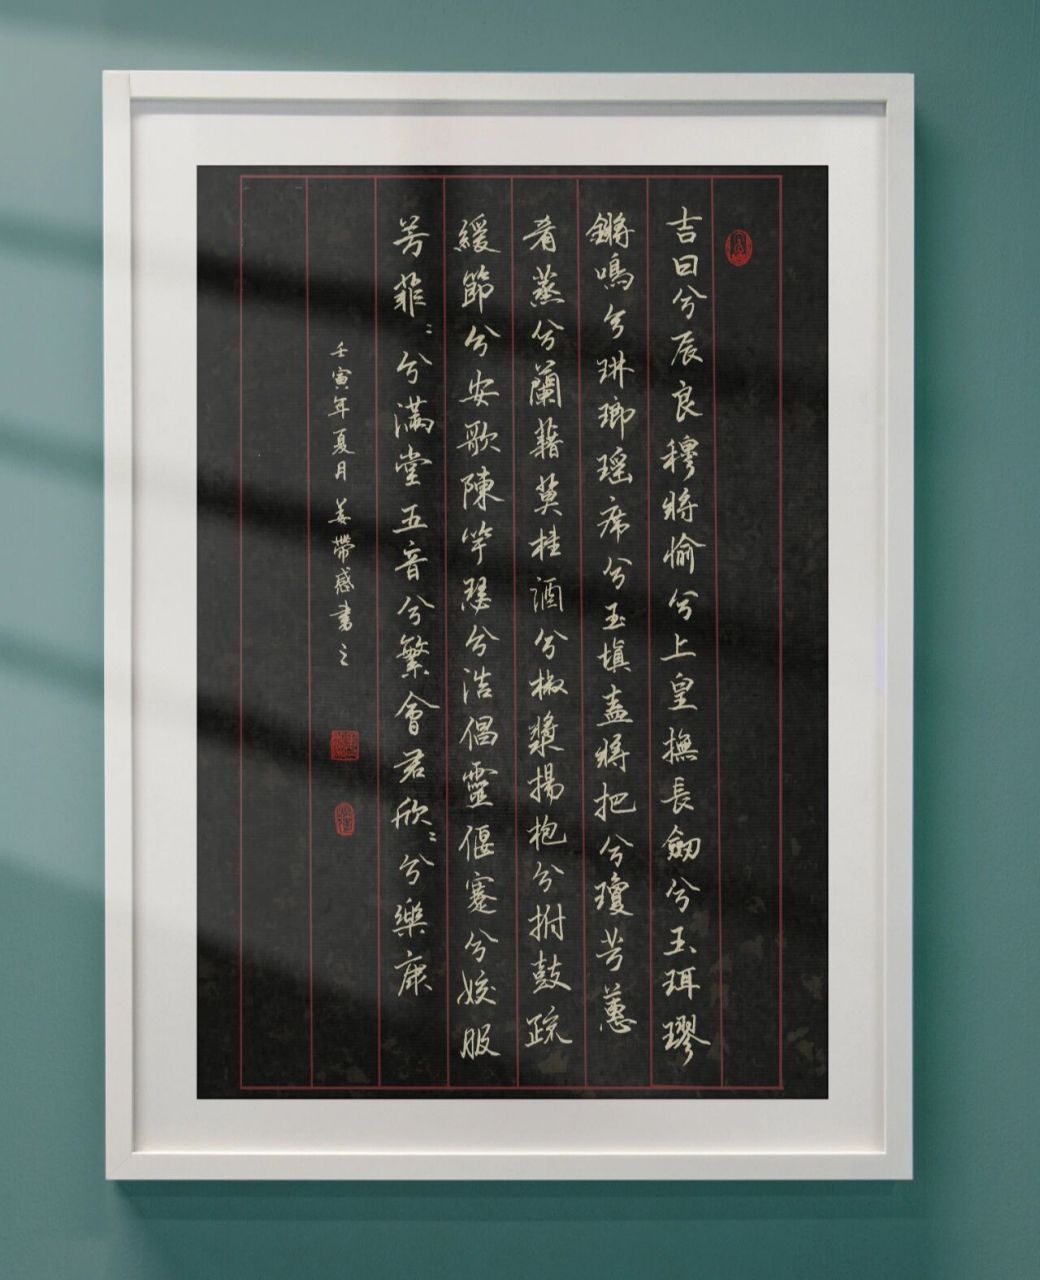 吉日兮辰良穆將愉兮上皇撫長劒兮玉珥璆
鏘鳴兮琳瑯瑶席兮玉瑱盍將把兮瓊芳蕙
肴蒸兮蘭藉奠桂酒兮椒漿揚枹兮拊鼓疏
緩節兮安歌陳竽瑟兮浩倡靈偃蹇兮姣服
芳菲〻兮满堂五音兮繁會君欣〻兮樂康
壬寅年夏月姜帶感書之